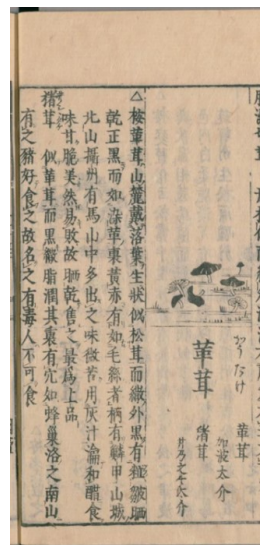 かうたけ
革茸
革茸
加波太介
猪茸
△按革茸山麓戴落葉生狀似松茸而繖外黒有細皺晒
乾正黒而如漆革裏黄赤有如毛絲者柄有鱗甲山城
北山攝州有馬山中多出之味微苦用灰汁瀹和醋食
味甘脆美然易敗故晒乾售之最爲上品
猪茸 似革茸而黒繖脂潤其裏有穴如蜂巢洛之南山
有之猪好食之故名之有毒人不可食